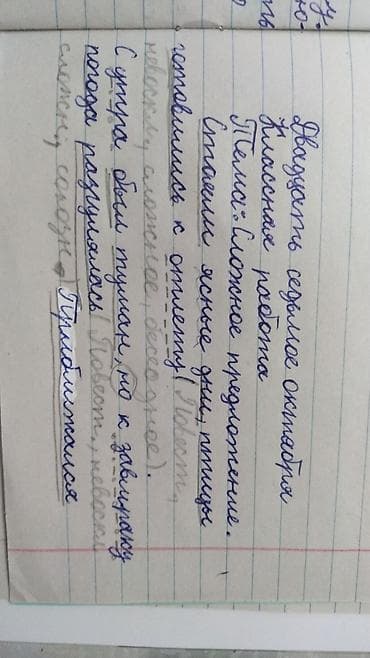 Двадцать седьмое октября
Классная работа
Тема: Сложное предложение.
Стояли ясные дни, птицы
готовились к отлету (Повест.,
невоскл., сложное, бессоюзное).
С утра был туман, но к завтраку
погода разгулялась (Повест., невоскл
сложн, союзн.) Приближался